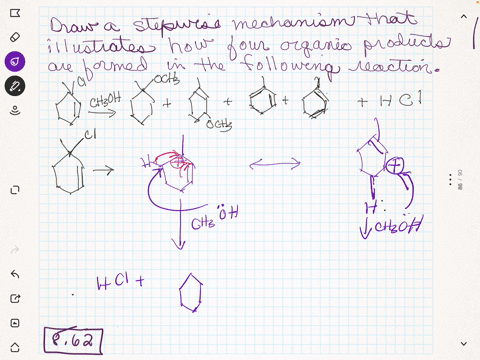 Draw a stepwise mechanism that
illustrates how four organic products
are formed in the following reaction.
Cl CH3OH → OCH3 + OCH3 + + + HCl
Cl → H + ↔ + H:
CH3ÖH CH3ÖH
HCl +
8.62